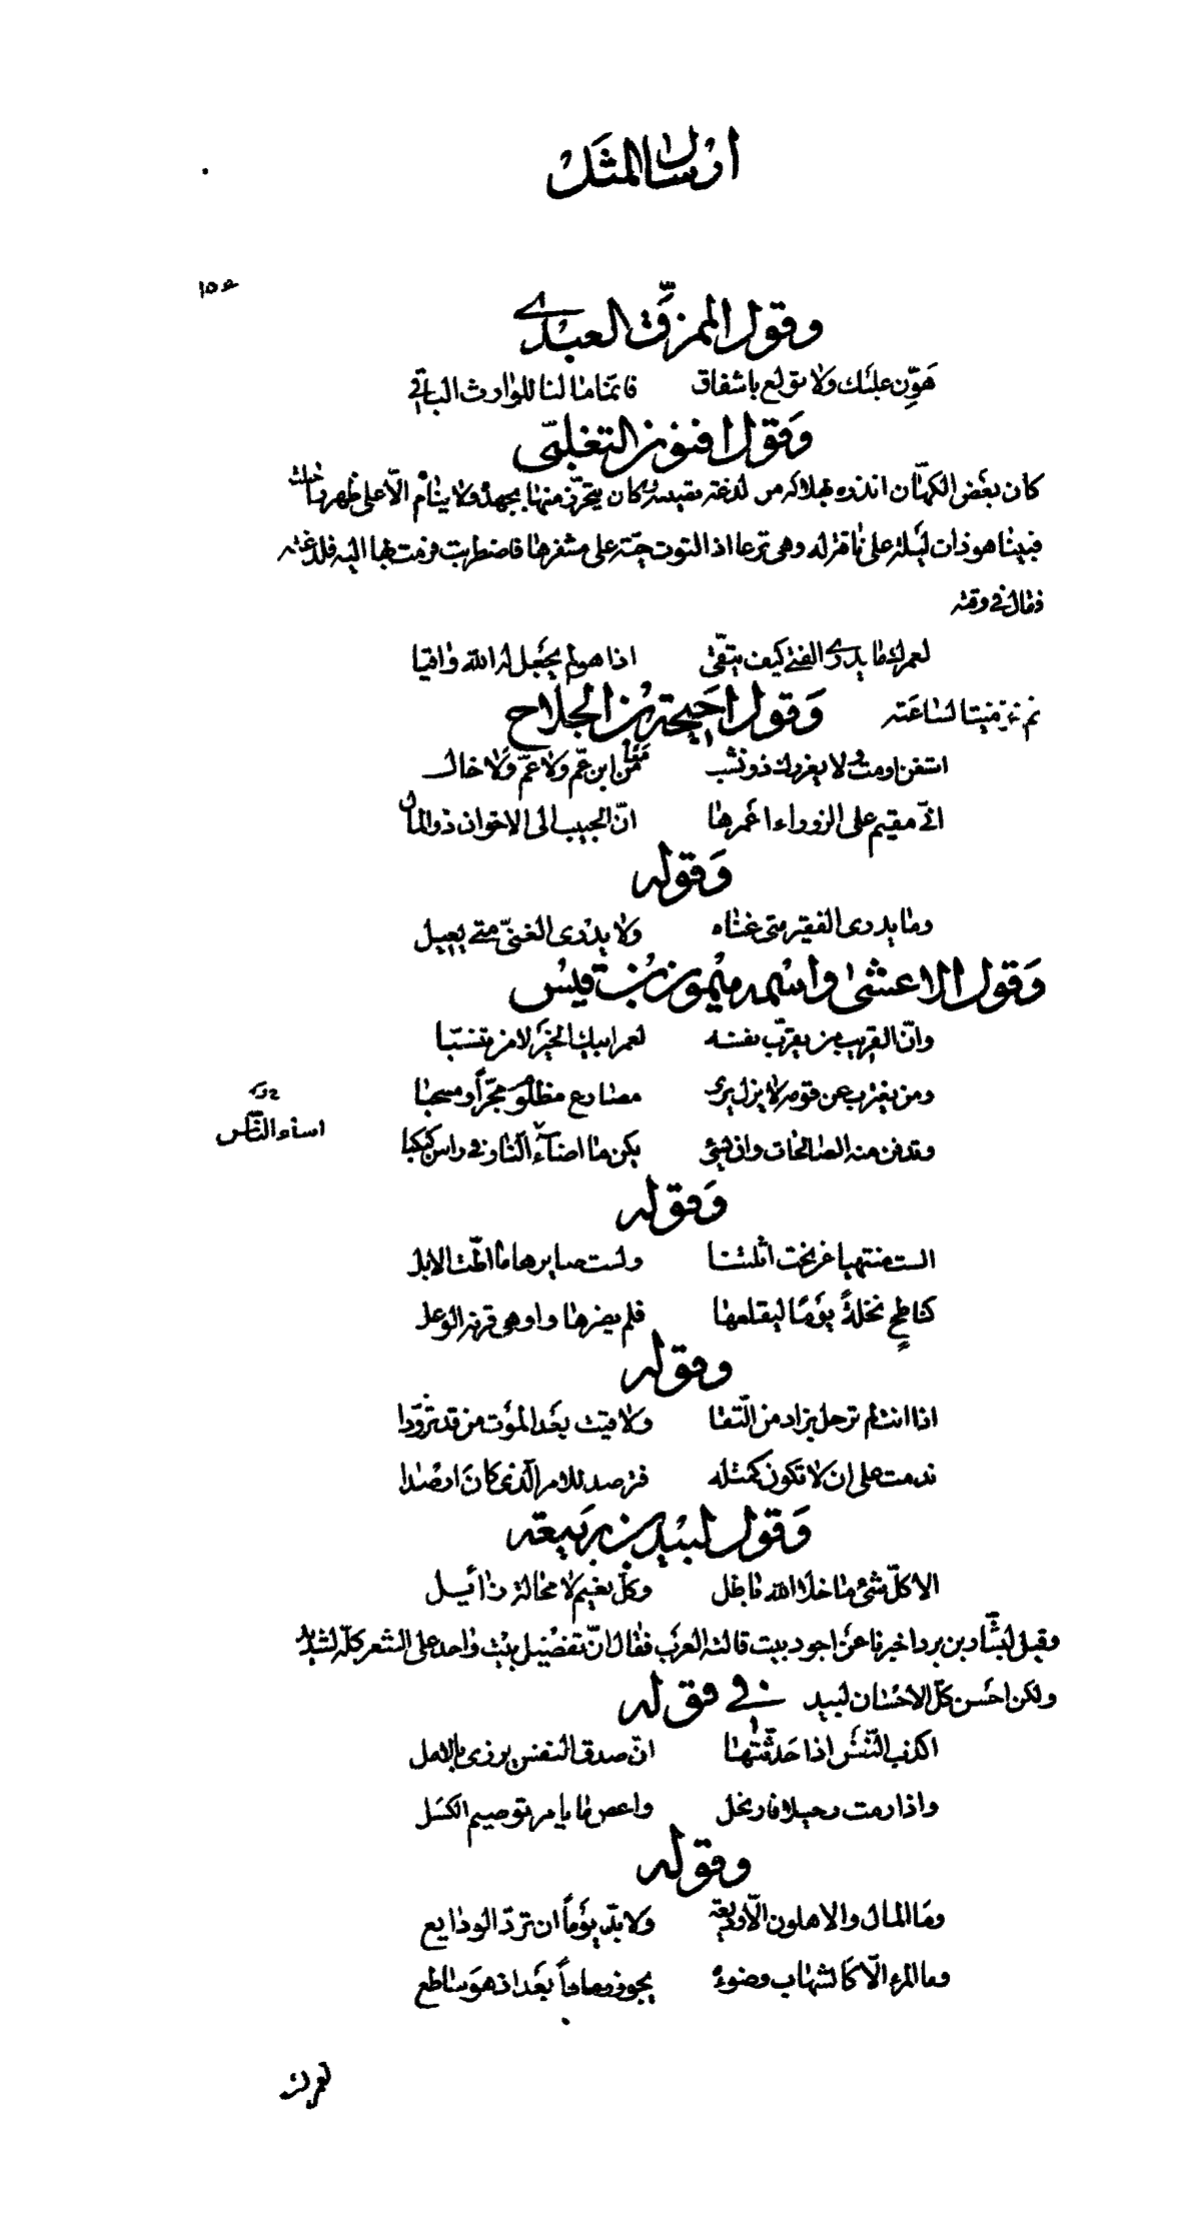 ارسال المثل
وقول الممزق العبدي
هَوِّن عليك ولا تولع باشفاق فانما مالنا للوارث الباقي
وقول افنون التغلبي
كان بعض الكهان انذره بهلاكه من لدغة تصيبه وكان يتحرّز منها بجهده ولا ينام الّا على ظهر ناقته
فبينا هو ذات ليلة على ناقة له وهى ترعا اذ التوت حيّة على مشفرها فاضطربت فرمت بها اليه فلدغته
فقال في وقته
لعمرك ما يدرى الفتى كيف يتقى اذا هو لم يجعل له الله واقيا
ثم مات من الساعته وقول احيحة بن الجلاح
استغن اومت ولا يغررك ذو نشب من ابن عمّ ولا عمّ ولا خال
انّى مقيم على الزوراء اعمرها انّ الحبيب الى الاخوان ذو المال
وقوله
وما يدرى الفقير متى غناه ولا يدرى الغنىّ متى يعيل
وقول الاعشى واسمه ميمون بن قيس
وانّ القريب من يقرّب نفسه لعمر ابيك الخير لا من تنسّبا
ومن يغترب عن قومه لا يزل يرى مصارع مظلوم مجرّاً ومسحبا
وتدفن منه الصالحات وان يسئ يكن ما اضاء النار فى راس كبكبا
اساء الناس
وقوله
الست منتهيا عن نحت اثلتنا ولست ضايرها ما اطّت الابل
كناطحٍ نخلةً يومًا ليقلعها فلم يضرها واوهى قرنه الوعل
وقوله
اذا انت لم ترحل بزاد من التّقا ولاقيت بعد الموت من قد تزوّدا
ندمت على ان لا تكون كمثله فترصد للامر الّذى كان ارصدا
وقول لبيد بن ربيعة
الا كلّ شئ ما خلا الله باطل وكلّ نعيم لا محالة زائيل
وقيل لبشّار بن برد اخبرنا عن اجود بيت قالته العرب فقال انّ تفضيل بيت واحد على الشعر كلّه لشديد
ولكن احسن كلّ الاحسان لبيد فى قوله
اكذب النّفس اذا حدّثتها انّ صدق النفس يزرى بالامل
واذا رمت رحيلا فارتحل واعص ما يامر توصيم الكسل
وقوله
وما المال والاهلون الّا وديعة ولا بدّ يوماً ان تردّ الودايع
وما المرء الّا كالشهاب وضوءه يحور رماداً بعد اذ هو ساطع
لعمرك